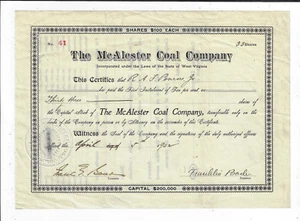 SHARES $100 EACH
No. 41
The McAlester Coal Company
Incorporated under the Laws of the State of West Virginia
This Certifies that
has paid the First Installment of per cent on
Thirty three shares of
the Capital Stock of The McAlester Coal Company, transferable only on the
books of the Company in person or by Attorney on the surrender of this Certificate.
Witness the Seal of the Company and the signatures of its duly authorized officers
April 1902
CAPITAL $200,000